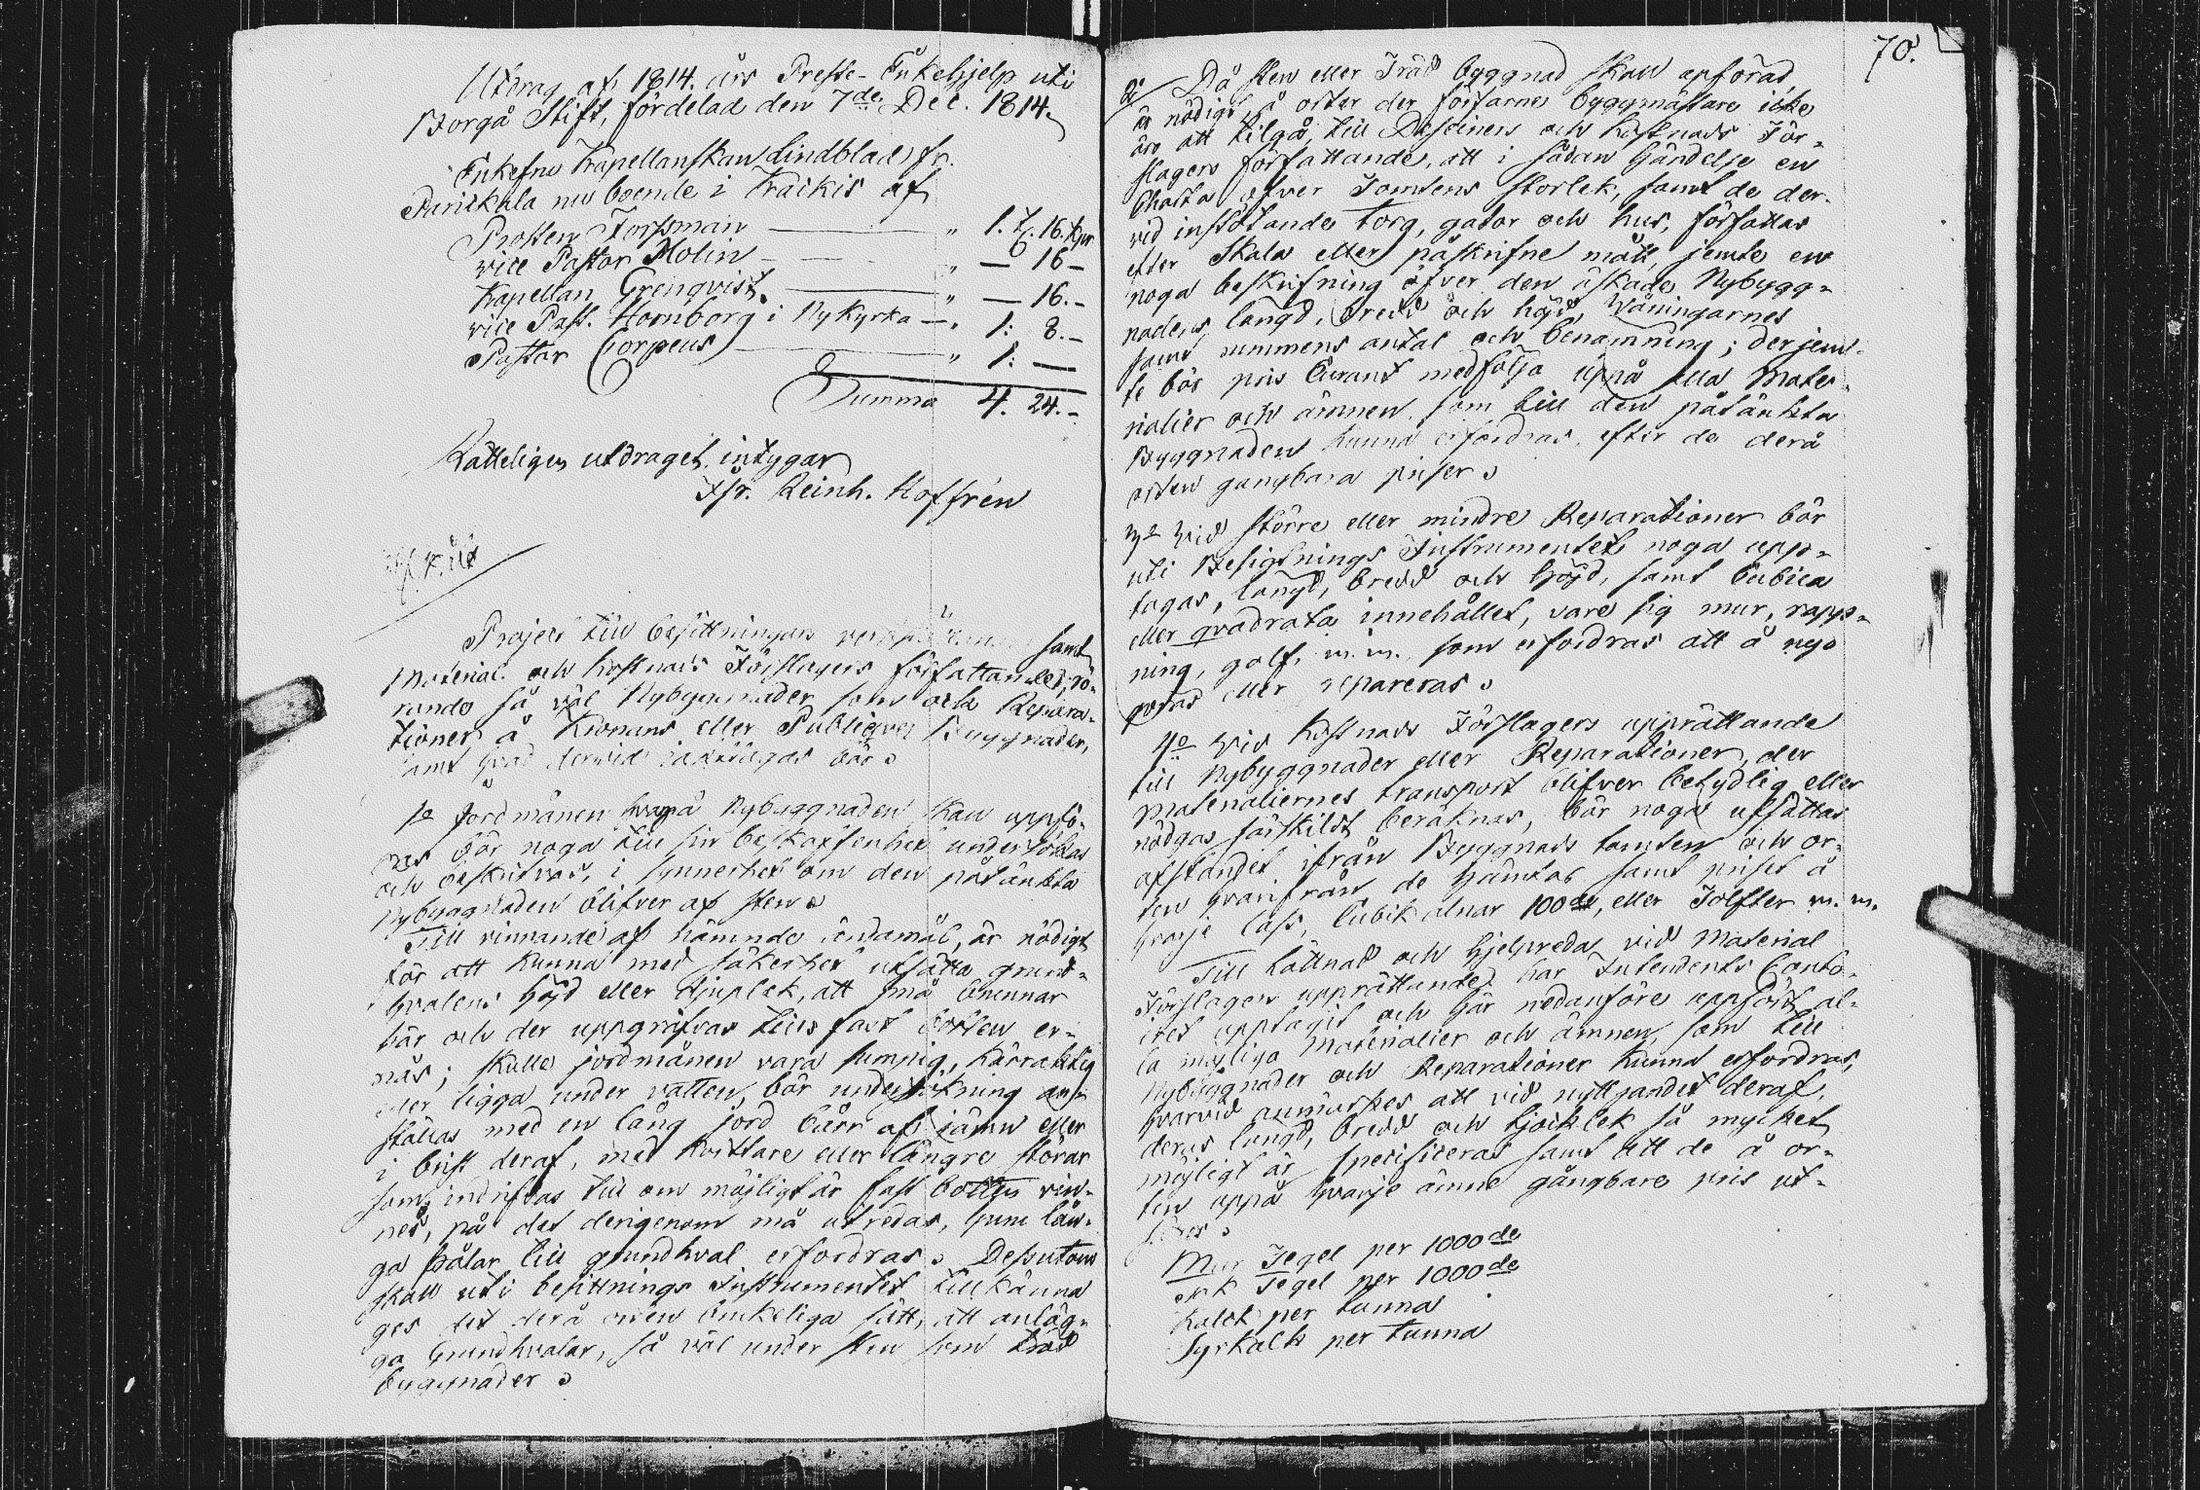 Utdrag af 1814. års Preste-Enkehjelp uti
Borgå Stift, fördelad den 7de Dec. 1814.
Enkefru Kapellanskan Lindblad fr.
Parikala nu boende i Kräikis af
Prosten Forssman — " 1. t. 16. kpr
vice Pastor Molin — " — 16 –
Kapellan Grenqvist — " — 16. –
vice Past. Hornborg i Nykyrka — " 1: 8. –
Pastor Corpeus — " 1: —
Summa 4. 24. –
Rätteligen utdraget, intygar
Isr. Reinh. Hoffrén
Project till besittningars samt
Material och kostnads Förslagers författande, rö-
rande så väl Nybyggnader som ock Repara-
tioner å Kronans eller Publique Byggnader,
samt hvad dervid iakttagas bör.
1o Jordmånen hvarpå Nybyggnaden skall uppfö-
ras bör noga till sin beskaffenhet undersökas
och beskrifvas, i synnerhet om den påtänkta
Nybyggnaden blifver af sten.
Till vinnande af nämnde ändamål, är nödigt
för att kunna med säkerhet utsätta grund-
hvalens höjd eller djuplek, att små brunnar
här och der uppgräfvas tills fast botten er-
nås; skulle jordmånen vara sumpig, kärraktig
eller ligga under vatten, bör undersökning an-
ställas med en lång jord bårr af järn eller
i brist deraf, med kortare eller längre störar
som indrifvas till om möjligt är fast botten vin-
nes, på det derigenom må utredas, huru lån-
ga pålar till grundhval erfordras. Dessutom
skall uti besittnings Instrumentet tillkänna
ges det derå orten brukeliga sätt, att anläg-
ga Grundhvalar, så väl under sten som träd
byggnader.
70.
2o Då sten eller Träd byggnad skall anföras,
är nödigt, å orter der förfarne byggmästare icke
äro att tilgå, till Desseiners och kostnads För-
slagers författande, att i sådan händelse en
Charta öfver Tomtens storlek, samt de der-
vid instötande torg, gator och hus, författas
efter Skala eller påskrifne mått, jemte en
noga beskrifning öfver den äskade Nybygg-
nadens längd, bredd och höjd, Våningarnes
samt rummens antal och benämning; derjem-
te bör pris Curant medfölja uppå alla Mate-
rialier och ämnen som till den påtänkta
Byggnaden kunna erfordras, efter de derå
orten gangbara priser.
3o Vid större eller mindre Reparationer bör
uti Besigtnings Instrumentet noga upp-
tagas, längd, bredd och höjd, samt Cubica
eller qvadrata innehållet, vare sig mur, rapp-
ning, golf, m. m. som erfordras att å nyo
göras eller repareras.
4o Vid Kostnads Förslagers upprättande
till Nybyggnader eller Reparationer, der
Materialiernes transport blifver betydlig eller
nödgas särskildt beräknas, bör noga utsättas
afståndet ifrån Byggnads tomten och or-
ten hvarifrån de hämtas samt priset å
hvarje lass, Cubik alnar 100de, eller Tolfter m. m.
Till lättnad och hjelpreda vid Material
Förslagen upprättande har Intendents Conto-
iret upptagit och här nedanföre uppfört al-
la möjliga Materialier och ämnen, som till
Nybyggnader och Reparationer kunna erfordras,
hvarvid anmärkes att vid nyttjandet deraf,
deras längd, bredd och tjocklek så mycket
möjligt är specificeras samt att de å or-
ten uppå hvarje ämne gångbare pris ut-
sättes.
Mur Tegel per 1000de
Tak Tegel per 1000de
Kalck per tunna
Lyrkalk per tunna